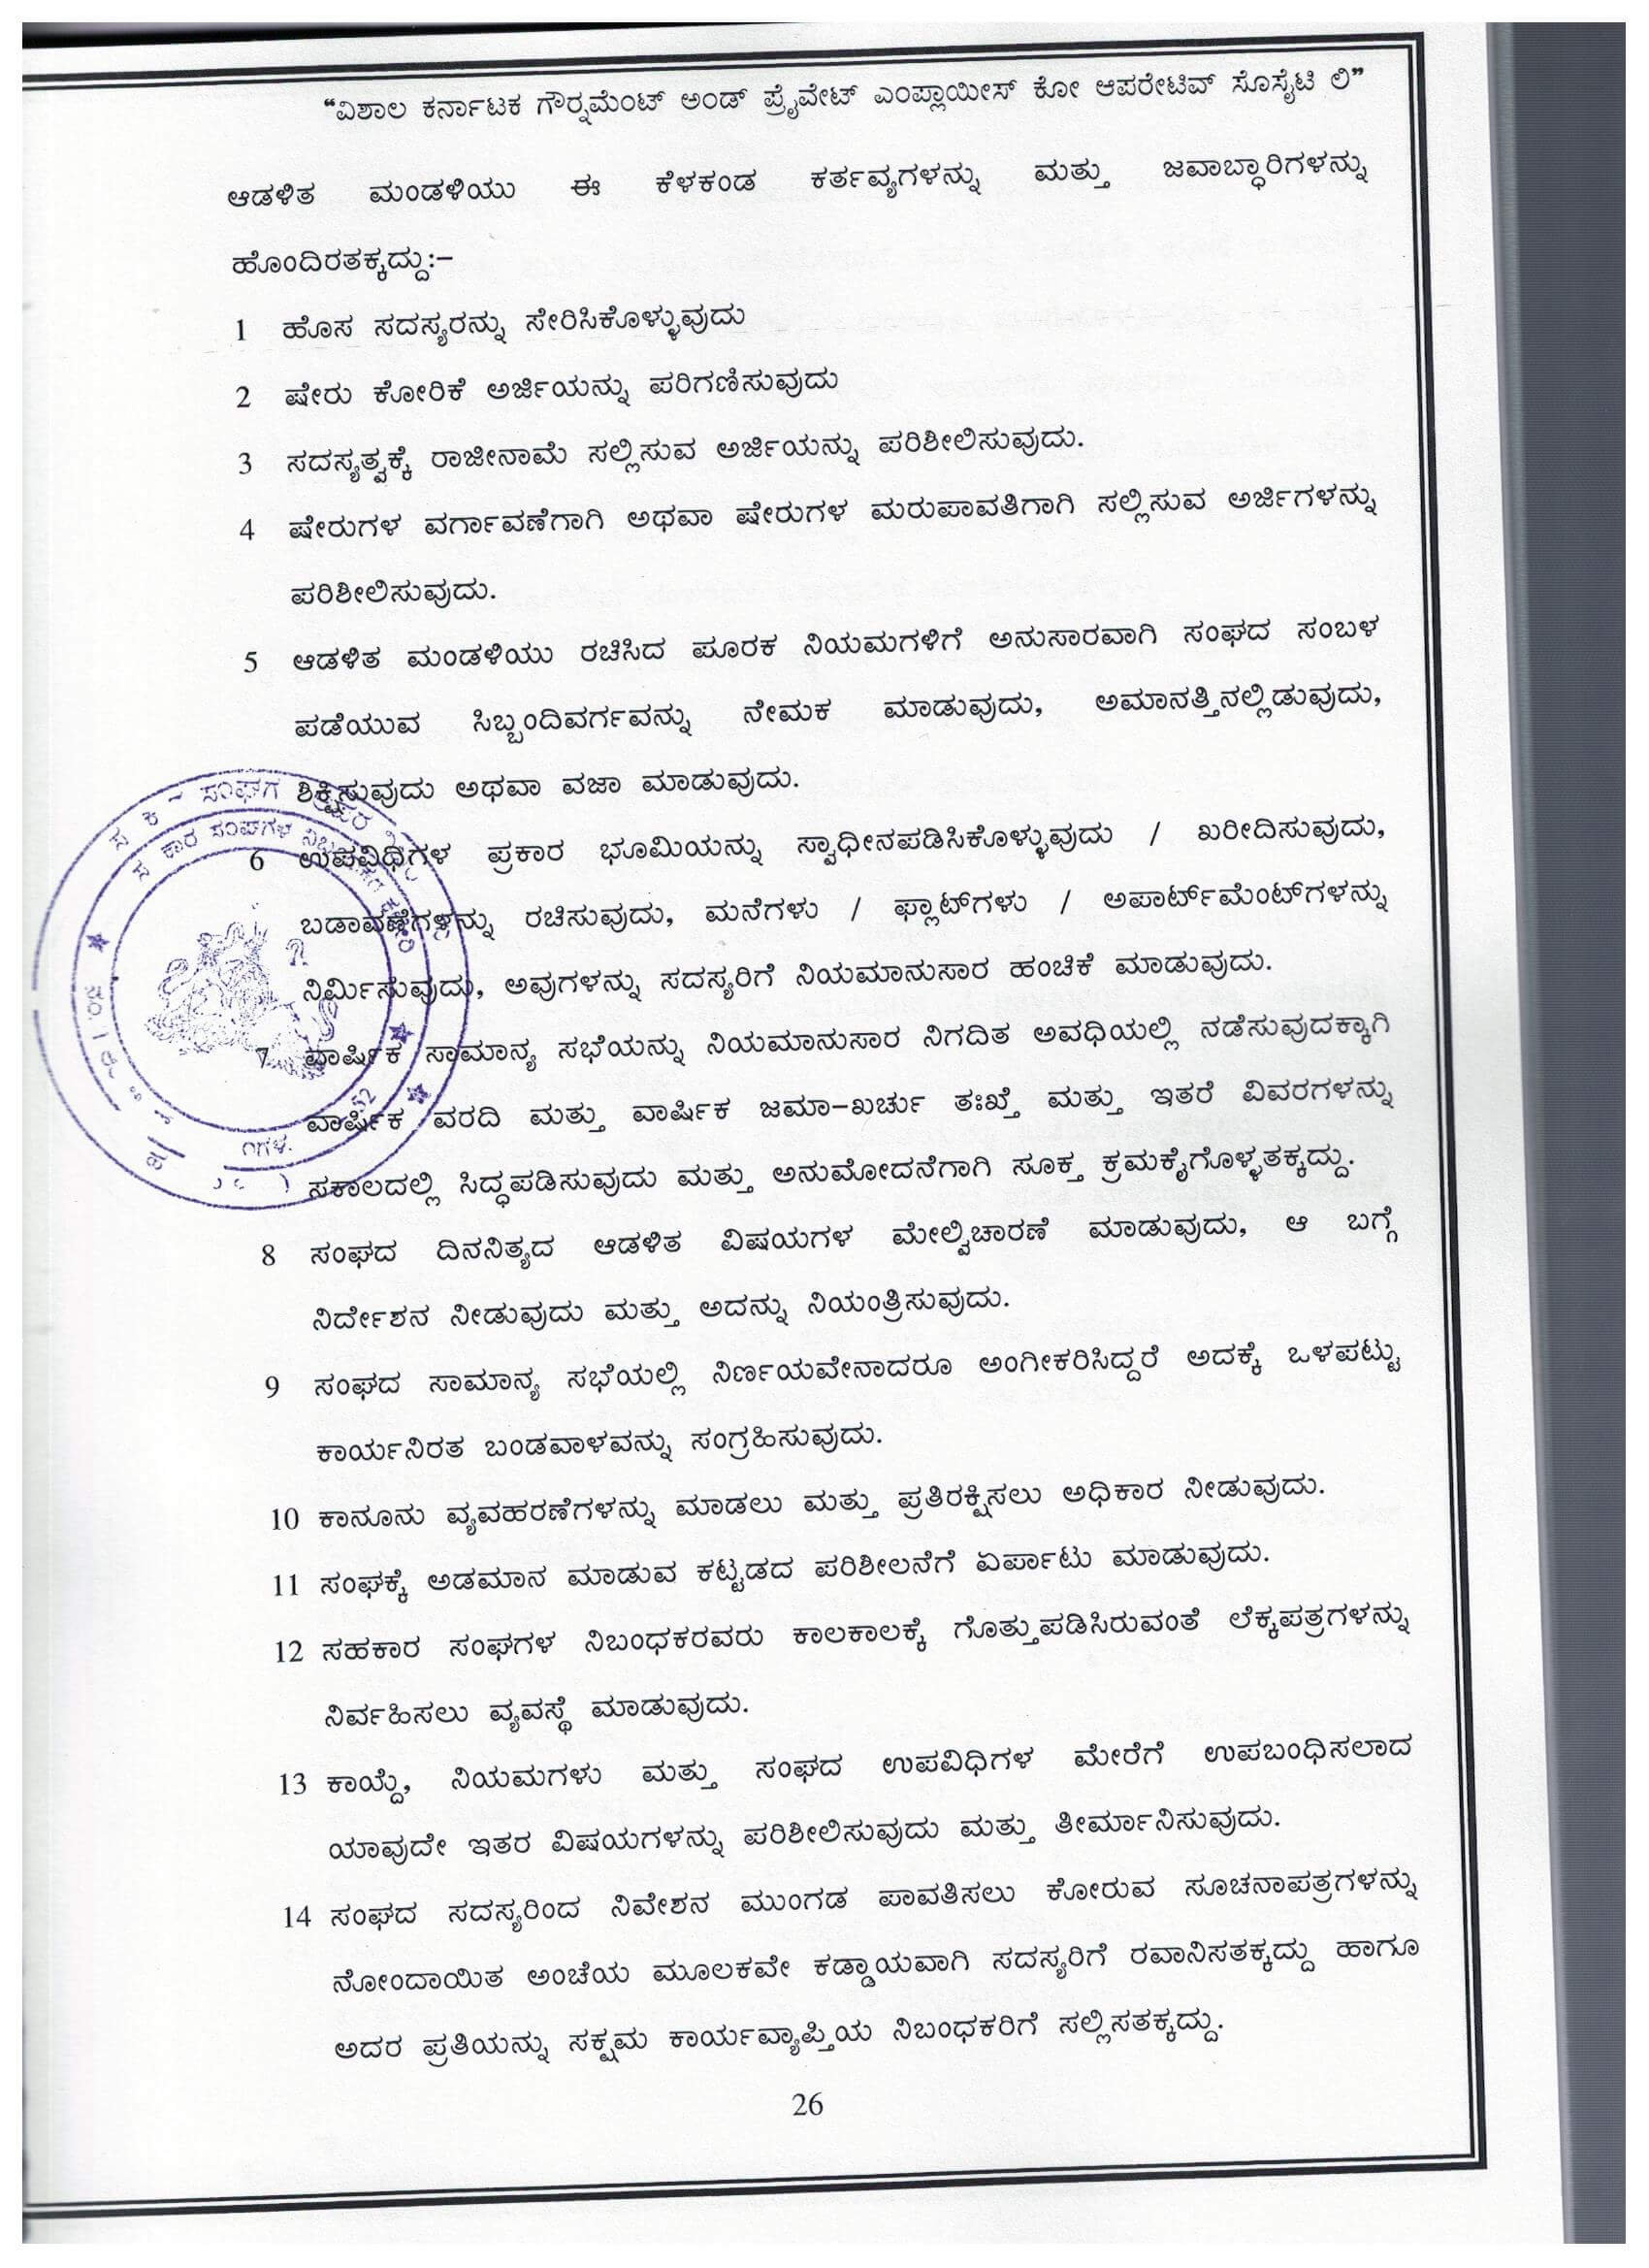 “ವಿಶಾಲ ಕರ್ನಾಟಕ ಗೌರ್‍ನಮೆಂಟ್ ಅಂಡ್ ಪ್ರೈವೇಟ್ ಎಂಪ್ಲಾಯೀಸ್ ಕೋ ಆಪರೇಟಿವ್ ಸೊಸೈಟಿ ಲಿ”
ಆಡಳಿತ ಮಂಡಳಿಯು ಈ ಕೆಳಕಂಡ ಕರ್ತವ್ಯಗಳನ್ನು ಮತ್ತು ಜವಾಬ್ಧಾರಿಗಳನ್ನು
ಹೊಂದಿರತಕ್ಕದ್ದು:–
1 ಹೊಸ ಸದಸ್ಯರನ್ನು ಸೇರಿಸಿಕೊಳ್ಳುವುದು
2 ಷೇರು ಕೋರಿಕೆ ಅರ್ಜಿಯನ್ನು ಪರಿಗಣಿಸುವುದು
3 ಸದಸ್ಯತ್ವಕ್ಕೆ ರಾಜೀನಾಮೆ ಸಲ್ಲಿಸುವ ಅರ್ಜಿಯನ್ನು ಪರಿಶೀಲಿಸುವುದು.
4 ಷೇರುಗಳ ವರ್ಗಾವಣೆಗಾಗಿ ಅಥವಾ ಷೇರುಗಳ ಮರುಪಾವತಿಗಾಗಿ ಸಲ್ಲಿಸುವ ಅರ್ಜಿಗಳನ್ನು
ಪರಿಶೀಲಿಸುವುದು.
5 ಆಡಳಿತ ಮಂಡಳಿಯು ರಚಿಸಿದ ಪೂರಕ ನಿಯಮಗಳಿಗೆ ಅನುಸಾರವಾಗಿ ಸಂಘದ ಸಂಬಳ
ಪಡೆಯುವ ಸಿಬ್ಬಂದಿವರ್ಗವನ್ನು ನೇಮಕ ಮಾಡುವುದು, ಅಮಾನತ್ತಿನಲ್ಲಿಡುವುದು,
ಶಿಕ್ಷಿಸುವುದು ಅಥವಾ ವಜಾ ಮಾಡುವುದು.
6 ಉಪವಿಧಿಗಳ ಪ್ರಕಾರ ಭೂಮಿಯನ್ನು ಸ್ವಾಧೀನಪಡಿಸಿಕೊಳ್ಳುವುದು / ಖರೀದಿಸುವುದು,
ಬಡಾವಣೆಗಳನ್ನು ರಚಿಸುವುದು, ಮನೆಗಳು / ಫ್ಲಾಟ್‌ಗಳು / ಅಪಾರ್ಟ್‌ಮೆಂಟ್‌ಗಳನ್ನು
ನಿರ್ಮಿಸುವುದು, ಅವುಗಳನ್ನು ಸದಸ್ಯರಿಗೆ ನಿಯಮಾನುಸಾರ ಹಂಚಿಕೆ ಮಾಡುವುದು.
7 ವಾರ್ಷಿಕ ಸಾಮಾನ್ಯ ಸಭೆಯನ್ನು ನಿಯಮಾನುಸಾರ ನಿಗದಿತ ಅವಧಿಯಲ್ಲಿ ನಡೆಸುವುದಕ್ಕಾಗಿ
ವಾರ್ಷಿಕ ವರದಿ ಮತ್ತು ವಾರ್ಷಿಕ ಜಮಾ–ಖರ್ಚು ತಃಖ್ತೆ ಮತ್ತು ಇತರೆ ವಿವರಗಳನ್ನು
ಸಕಾಲದಲ್ಲಿ ಸಿದ್ಧಪಡಿಸುವುದು ಮತ್ತು ಅನುಮೋದನೆಗಾಗಿ ಸೂಕ್ತ ಕ್ರಮಕೈಗೊಳ್ಳತಕ್ಕದ್ದು.
8 ಸಂಘದ ದಿನನಿತ್ಯದ ಆಡಳಿತ ವಿಷಯಗಳ ಮೇಲ್ವಿಚಾರಣೆ ಮಾಡುವುದು, ಆ ಬಗ್ಗೆ
ನಿರ್ದೇಶನ ನೀಡುವುದು ಮತ್ತು ಅದನ್ನು ನಿಯಂತ್ರಿಸುವುದು.
9 ಸಂಘದ ಸಾಮಾನ್ಯ ಸಭೆಯಲ್ಲಿ ನಿರ್ಣಯವೇನಾದರೂ ಅಂಗೀಕರಿಸಿದ್ದರೆ ಅದಕ್ಕೆ ಒಳಪಟ್ಟು
ಕಾರ್ಯನಿರತ ಬಂಡವಾಳವನ್ನು ಸಂಗ್ರಹಿಸುವುದು.
10 ಕಾನೂನು ವ್ಯವಹರಣೆಗಳನ್ನು ಮಾಡಲು ಮತ್ತು ಪ್ರತಿರಕ್ಷಿಸಲು ಅಧಿಕಾರ ನೀಡುವುದು.
11 ಸಂಘಕ್ಕೆ ಅಡಮಾನ ಮಾಡುವ ಕಟ್ಟಡದ ಪರಿಶೀಲನೆಗೆ ಏರ್ಪಾಟು ಮಾಡುವುದು.
12 ಸಹಕಾರ ಸಂಘಗಳ ನಿಬಂಧಕರವರು ಕಾಲಕಾಲಕ್ಕೆ ಗೊತ್ತುಪಡಿಸಿರುವಂತೆ ಲೆಕ್ಕಪತ್ರಗಳನ್ನು
ನಿರ್ವಹಿಸಲು ವ್ಯವಸ್ಥೆ ಮಾಡುವುದು.
13 ಕಾಯ್ದೆ, ನಿಯಮಗಳು ಮತ್ತು ಸಂಘದ ಉಪವಿಧಿಗಳ ಮೇರೆಗೆ ಉಪಬಂಧಿಸಲಾದ
ಯಾವುದೇ ಇತರ ವಿಷಯಗಳನ್ನು ಪರಿಶೀಲಿಸುವುದು ಮತ್ತು ತೀರ್ಮಾನಿಸುವುದು.
14 ಸಂಘದ ಸದಸ್ಯರಿಂದ ನಿವೇಶನ ಮುಂಗಡ ಪಾವತಿಸಲು ಕೋರುವ ಸೂಚನಾಪತ್ರಗಳನ್ನು
ನೋಂದಾಯಿತ ಅಂಚೆಯ ಮೂಲಕವೇ ಕಡ್ಡಾಯವಾಗಿ ಸದಸ್ಯರಿಗೆ ರವಾನಿಸತಕ್ಕದ್ದು ಹಾಗೂ
ಅದರ ಪ್ರತಿಯನ್ನು ಸಕ್ಷಮ ಕಾರ್ಯವ್ಯಾಪ್ತಿಯ ನಿಬಂಧಕರಿಗೆ ಸಲ್ಲಿಸತಕ್ಕದ್ದು.
26